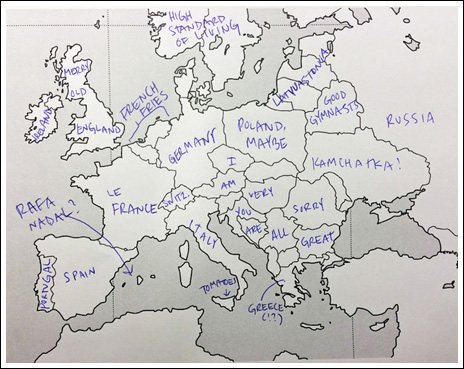 HIGH
STANDARD
OF LIVING
MERRY
OLD
ENGLAND
IRELAND
FRENCH
FRIES
GOOD
GYMNASTS
RUSSIA
GERMANY
POLAND,
MAYBE
I
KAMCHATKA?
LE
FRANCE
SWITZ.
AM
VERY
SORRY
YOU
ARE
ALL
GREAT
ITALY
RAFA
NADAL?
PORTUGAL
SPAIN
TOMATOES
GREECE
(!?)